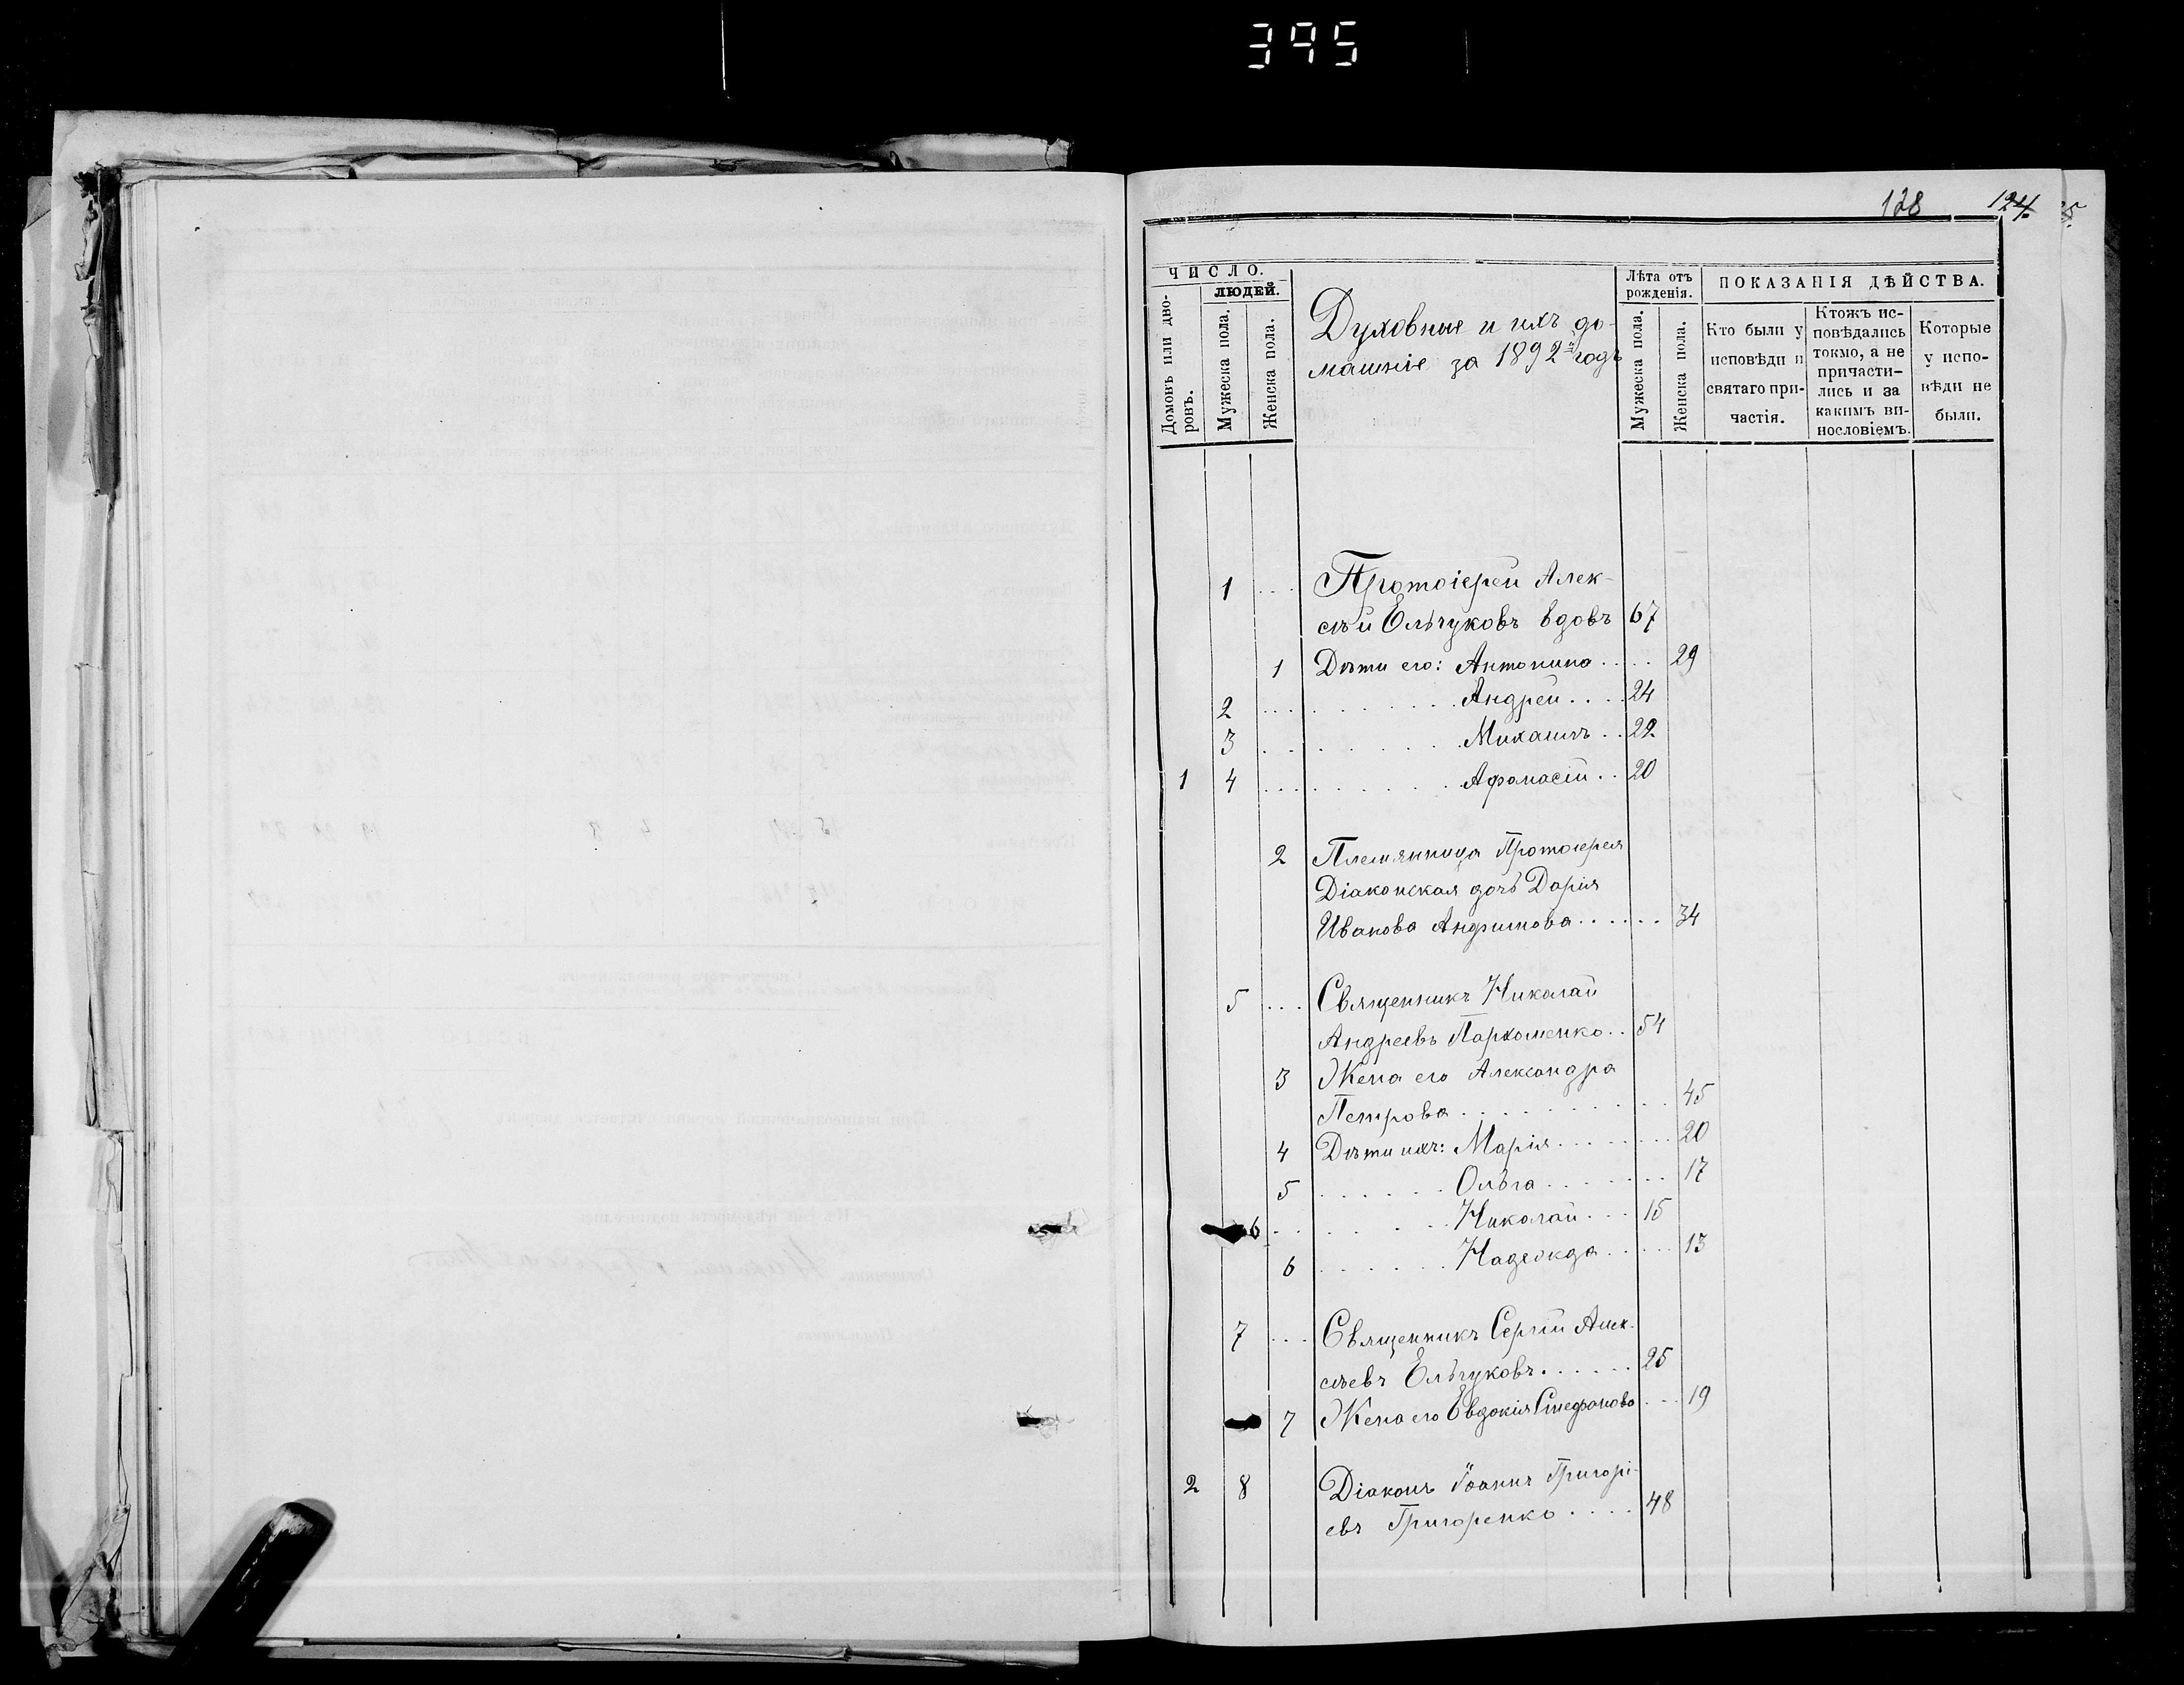 395
128 124
ЧИСЛО.
ЛЮДЕЙ.
Домовъ или дворовъ.
Мужеска пола.
Женска пола.
Духовные и ихъ до-
машніе за 1892й годъ
Лѣта отъ рожденія.
Мужеска пола.
Женска пола.
ПОКАЗАНІЯ ДѢЙСТВА.
Кто были у исповѣди и святаго при-частія.
Ктожъ ис-повѣдались токмо, а не причасти-лись и за какимъ ви-нословіемъ.
Которые у испо-вѣди не были.
1 ... Протоіерей Алек-
сѣй Ельчуковъ вдовъ 67
1 Дѣти его: Антонина .... 29
2 ... Андрей .... 24
3 ... Михаилъ .. 22
1 4 ... Афанасій .. 20
2 Племянница Протоіерея
Діаконская дочь Дарія
Иванова ...... 34
5 ... Священникъ Николай
Андреевъ Пархоменко .. 54
3 Жена его Александра
Петрова .......... 45
4 Дѣти ихъ: Марія ........ 20
5 ...... Ольга ....... 17
6 ...... Николай ... 15
6 ...... Надежда ..... 13
7 ... Священникъ Сергій Алек-
сѣевъ Ельчуковъ ...... 25
7 Жена его Евдокія Стефанова ... 19
2 8 Діаконъ Іоаннъ Григорі-
евъ Григоренко .... 48